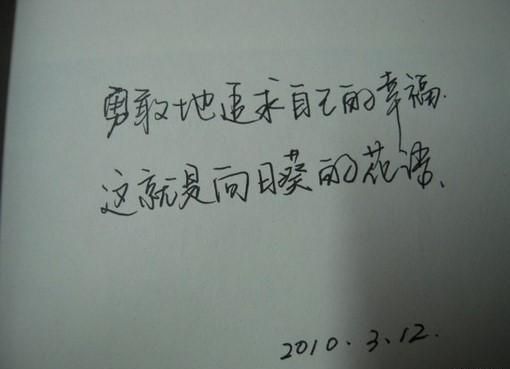 勇敢地追求自己的幸福.
这就是向日葵的花语、
2010.3.12.